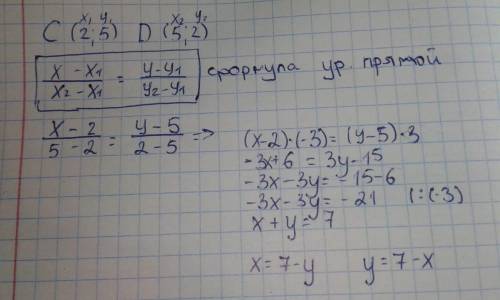 x₁ y₁ x₂ y₂
C (2;5) D (5;2)
(x - x₁)/(x₂ - x₁) = (y - y₁)/(y₂ - y₁) формула ур. прямой
(x - 2)/(5 - 2) = (y - 5)/(2 - 5) =>
(x-2)·(-3) = (y-5)·3
-3x+6 = 3y-15
-3x-3y = -15-6
-3x-3y = -21 (:(-3)
x+y = 7
x = 7-y y = 7-x